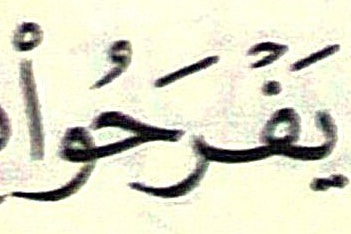 يَفْرَحُوا۟